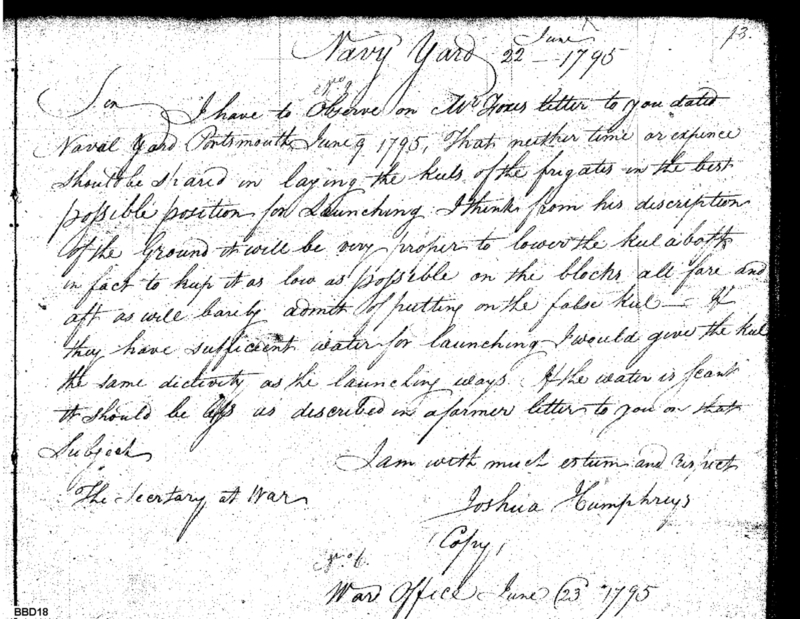 13.
Navy Yard 22 June 1795
Sir
I have to Observe on Mr Foxes letter to you dated
Naval Yard Portsmouth June 9 1795, That neither time or expence
should be spared in laying the keels of the frigates in the best
possible position for Launching I think from his discription
of the Ground it will be very proper to lower the keel aboth
in fact to keep it as low as possible on the blocks all fore and
aft as will barely admit of putting on the false keel — If
they have sufficient water for launching I would give the keel
the same declivity as the launching ways If the water is scant
it should be less as described in a former letter to you on that
Subject
I am with much esteem and Respect
The Secretary at War
Joshua Humphreys
Copy,
War Office June 23 1795
BBD18